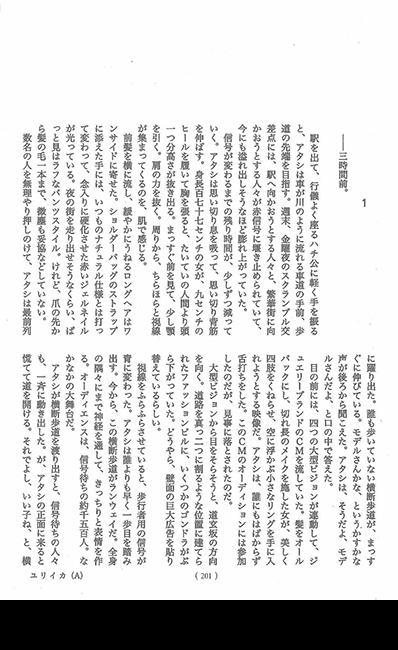 1
――三時間前。
駅を出て、行儀よく座るハチ公に軽く手を振る
と、アタシは車が川のように流れる車道の手前、歩
道の先端を目指す。週末、金曜夜のスクランブル交
差点には、駅へ向かおうとする人々と、繁華街に向
かおうとする人々が赤信号に堰き止められていて、
今にも溢れ出しそうなほど膨れ上がっていた。
信号が変わるまでの残り時間が、少しずつ減って
いく。アタシは思い切り息を吸って、思い切り背筋
を伸ばす。身長百七十七センチの女が、九センチの
ヒールを履いて胸を張ると、たいていの人間より頭
一つ分高さが抜き出る。まっすぐ前を見て、少し顎
を引く。肩の力を抜く。周りから、ちらほらと視線
が集まってくるのを、肌で感じる。
前髪を横に流し、緩やかにうねるロングヘアはワ
ンサイドに寄せた。ショルダーバッグのストラップ
に添えた手には、いつものナチュラル仕様とは打っ
て変わって、念入りに硬化させた赤いジェルネイル
が光っている。夜の街を走り出せそうなくらい、ぱ
っと見はラフなパンツスタイル。けれど、爪の先か
ら髪の毛一本まで、微塵も妥協などしていない。
数名の人を無理やり押しのけて、アタシは最前列
に躍り出た。誰も歩いていない横断歩道が、まっす
ぐに伸びている。モデルさんかな、というかすかな
声が後ろから聞こえた。アタシは、そうだよ、モデ
ルさんだよ、と口の中で答えた。
目の前には、四つの大型ビジョンが連動して、ジ
ュエリーブランドのCMを流していた。髪をオール
バックにし、切れ長のメイクを施した女が、美しく
四肢をくねらせ、空に浮かぶ小さなリングを手に入
れようとする映像だ。アタシは、誰にもはばからず
舌打ちをした。このCMのオーディションには参加
したのだが、見事に落とされたのだ。
大型ビジョンから目をそらそうと、道玄坂の方向
を向く。道路を真っ二つに割るような位置に建てら
れたファッションビルに、いくつかのゴンドラがぶ
ら下がっていた。どうやら、壁面の巨大広告を貼り
替えているらしい。
視線をふらふらさせていると、歩行者用の信号が
青に変わった。アタシは誰よりも早く一歩目を踏み
出す。今から、この横断歩道がランウェイだ。全身
の隅々にまで神経を通して、きっちりと表情を作
る。オーディエンスは、信号待ちの約千五百人。な
かなかの大舞台だ。
アタシが横断歩道を渡り出すと、信号待ちの人々
も、一斉に動き出した。が、アタシの正面に来ると
慌てて道を開ける。それでよし、いい子ね、と、横
(201)
ユリイカ(A)